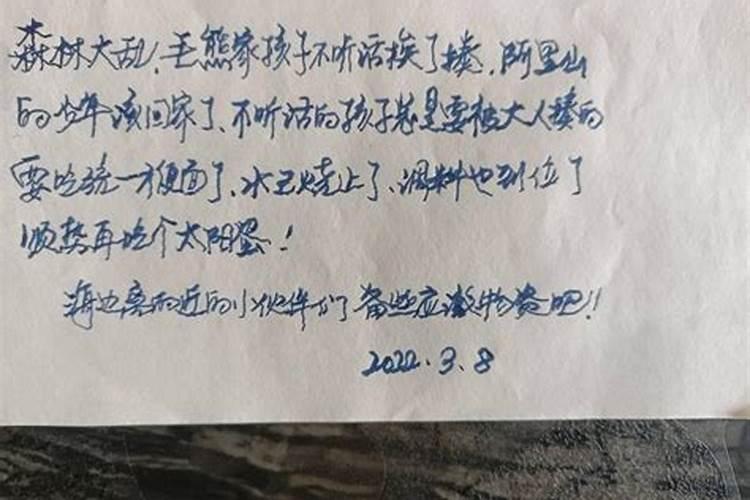 森林大乱，毛熊家孩子不听话挨了揍，阿里山
的少年该回家了、不听话的孩子总是要被大人揍的
要吃统一方便面了、水已烧上了、调料也到位了
顺势再吃个太阳蛋！
海边离的近的小伙伴们备些应激物资吧！！
2022.3.8